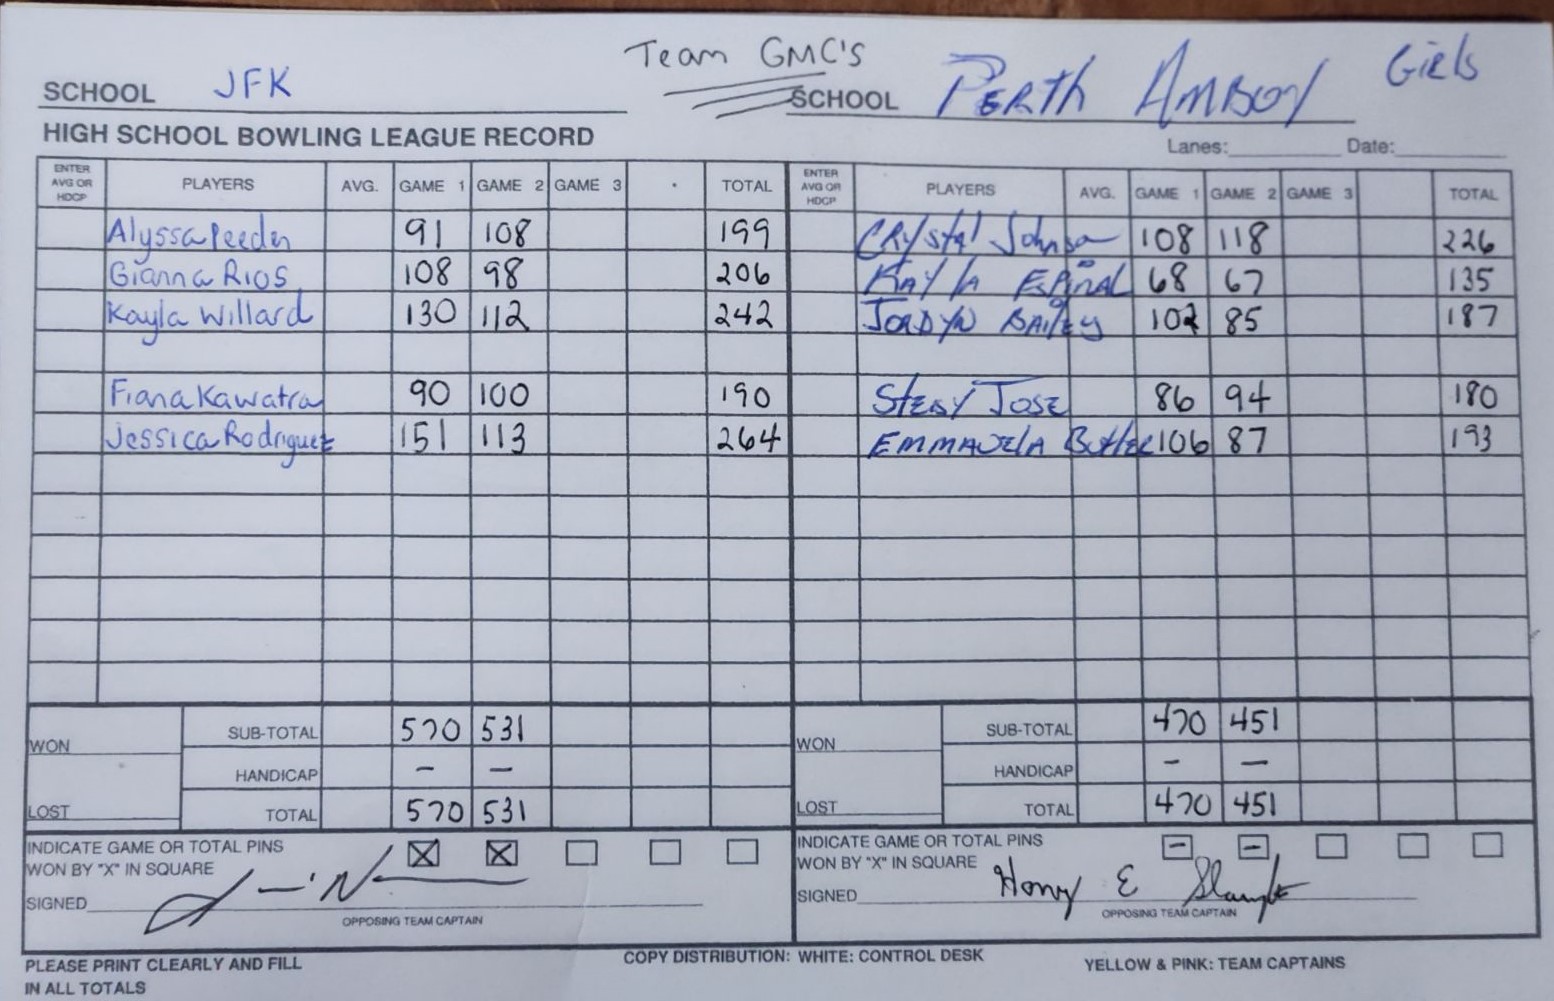 Team GMC'S
SCHOOL JFK SCHOOL PERTH AMBOY Girls
HIGH SCHOOL BOWLING LEAGUE RECORD Lanes: Date:
ENTER AVG OR HDCP PLAYERS AVG. GAME 1 GAME 2 GAME 3 TOTAL ENTER AVG OR HDCP PLAYERS AVG. GAME 1 GAME 2 GAME 3 TOTAL
Alyssa Reeder 91 108 199 CRystal Johnson 108 118 226
Gianna Rios 108 98 206 KAYlA ESPINAL 68 67 135
Kayla Willard 130 112 242 JORDYN BAILEY 102 85 187
Fiana Kawatra 90 100 190 JOSE 86 94 180
Jessica Rodriguez 151 113 264 EMMAUELA Butler 106 87 193
WON SUB-TOTAL 570 531 WON SUB-TOTAL 470 451
HANDICAP – – HANDICAP – –
LOST TOTAL 570 531 LOST TOTAL 470 451
INDICATE GAME OR TOTAL PINS X X INDICATE GAME OR TOTAL PINS – –
WON BY "X" IN SQUARE WON BY "X" IN SQUARE
SIGNED SIGNED E
OPPOSING TEAM CAPTAIN OPPOSING TEAM CAPTAIN
PLEASE PRINT CLEARLY AND FILL COPY DISTRIBUTION: WHITE: CONTROL DESK YELLOW & PINK: TEAM CAPTAINS
IN ALL TOTALS